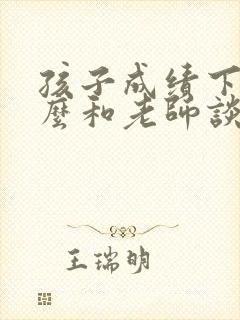 孩子成绩下
麼和老師談
王瑞明